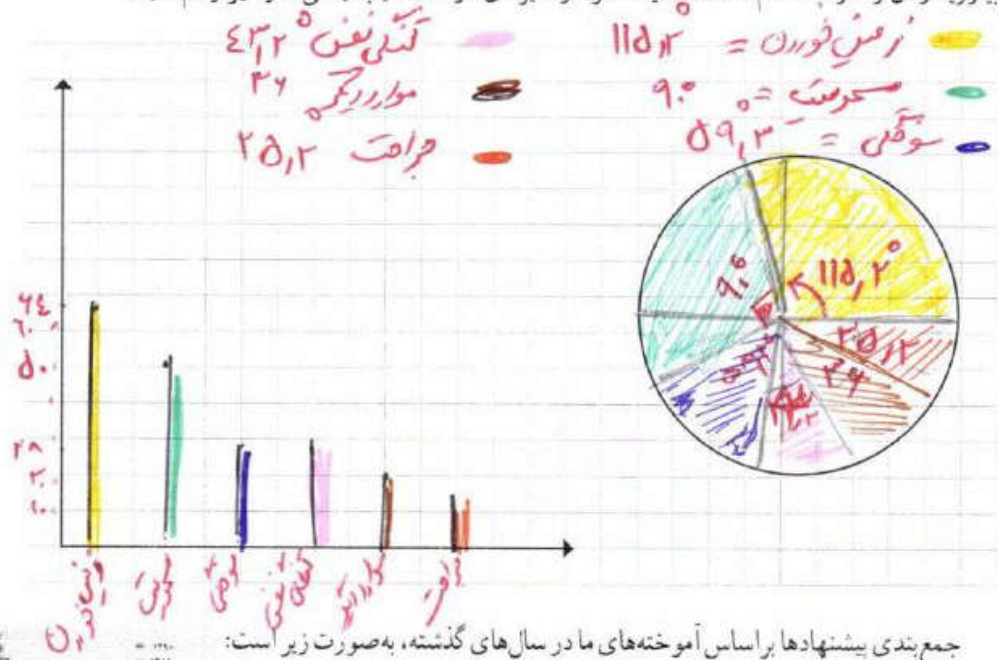 زمین خوردن = ۱۱۵٫۲°
مسمومیت = ۹۰°
سوختگی = ۵۹٫۳°
تنگی نفس ۴۳٫۲°
موارد دیگر ۳۶°
جراحت ۲۵٫۲
۱۱۵٫۲°
۹۰°
۲۵٫۲
۳۶
۶۴
۶۰
۵۰
۲۸
۲۰
۱۰
زمین خوردن
مسمومیت
سوختگی
تنگی نفس
موارد دیگر
جراحت
جمع‌بندی پیشنهادها براساس آموخته‌های ما در سال‌های گذشته، به‌صورت زیر است: